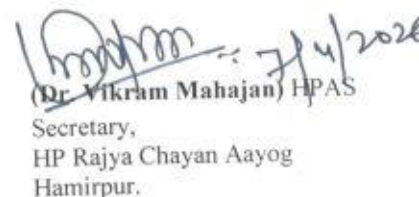 7/4/2026
(Dr. Vikram Mahajan) HPAS
Secretary,
HP Rajya Chayan Aayog
Hamirpur.